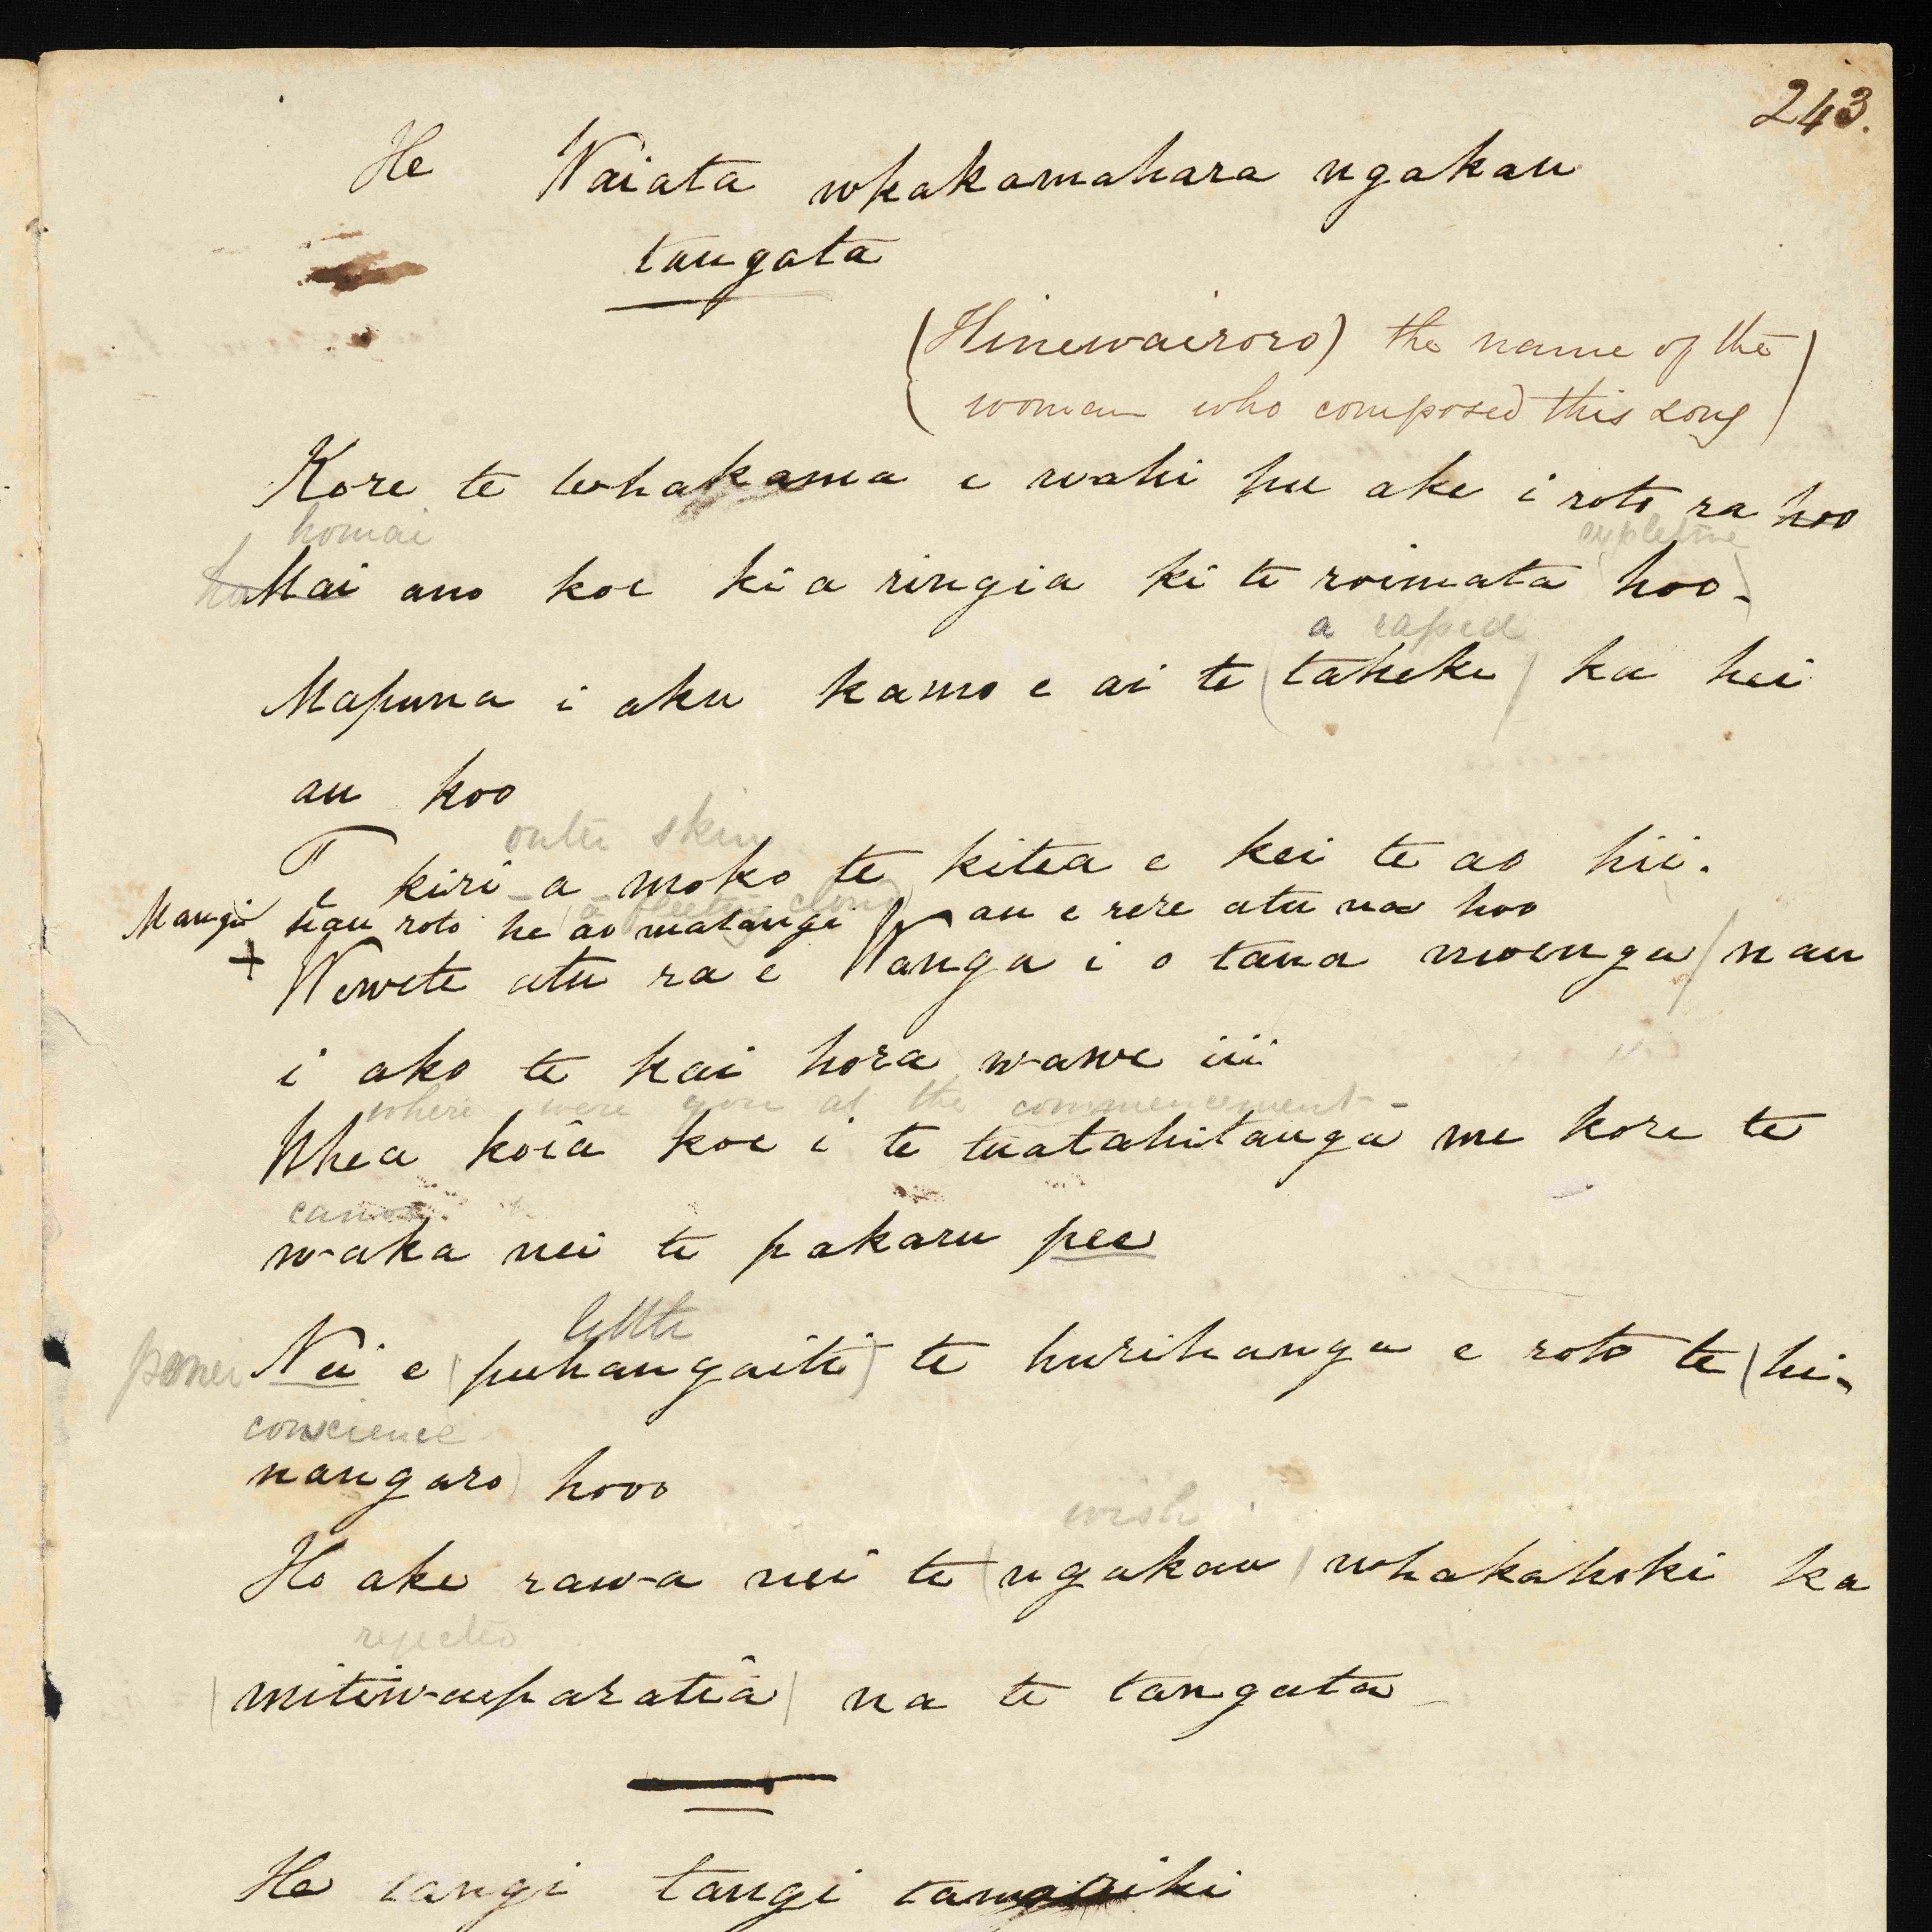 243.
He Waiata whakamahara ngakau
tangata
(Hinewairoro) the name of the
woman who composed this song
Kore te whakama e wahi hu ake i roto ra hoo
homai expletive
Mai ano koe kia ringia ki te roimata (hoo-)
a rapid
Mapuna i aku kamo e ai te (taheke) ka hei
au koo
outer skin
Te kiri-a-moko te kitea e kei te ao hii.
a fleeting cloud
Mangi hau roto he ao matangi au e rere atu na hoo
+ Wewete atu ra e Wanga i o taua moenga / nau
i ako te kai hora wawe iii
where were you at the commencement -
Whea koia koe i te tuatahitanga me kore te
canoe
waka nei te pakaru pee
little
penei Nei e (puhangaiti) te hurihanga e roto te (hi-
conscience
nangaro) hooo
wish
Ho ake rawa nei te (ngakau) whakahoki ka
rejected
(mitiwaiparatia) na te tangata
He tangi tangi tamariki